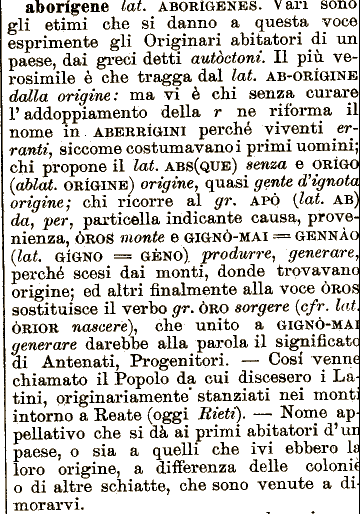 aborígene lat. ABORÍGENES. Vari sono
gli etimi che si danno a questa voce
esprimente gli Originari abitatori di un
paese, dai greci detti autòctoni. Il più ve-
rosimile è che tragga dal lat. AB-ORÍGINE
dalla origine: ma vi è chi senza curare
l'addoppiamento della r ne riforma il
nome in ABERRÍGINI perché viventi er-
ranti, siccome costumavano i primi uomini;
chi propone il lat. ABS(QUE) senza e ORÍGO
(ablat. ORÍGINE) origine, quasi gente d'ignota
origine; chi ricorre al gr. APÒ (lat. AB)
da, per, particella indicante causa, prove-
nienza, ÒROS monte e GIGNÒ-MAI = GENNÀO
(lat. GÍGNO = GÈNO) produrre, generare,
perché scesi dai monti, donde trovavano
origine; ed altri finalmente alla voce ÒROS
sostituisce il verbo gr. ÒRO sorgere (cfr. lat.
ÒRIOR nascere), che unito a GIGNÒ-MAI
generare darebbe alla parola il significato
di Antenati, Progenitori. — Cosí venne
chiamato il Popolo da cui discesero i La-
tini, originariamente stanziati nei monti
intorno a Reate (oggi Rieti). — Nome ap-
pellativo che si dà ai primi abitatori d'un
paese, o sia a quelli che ivi ebbero la
loro origine, a differenza delle colonie
o di altre schiatte, che sono venute a di-
morarvi.